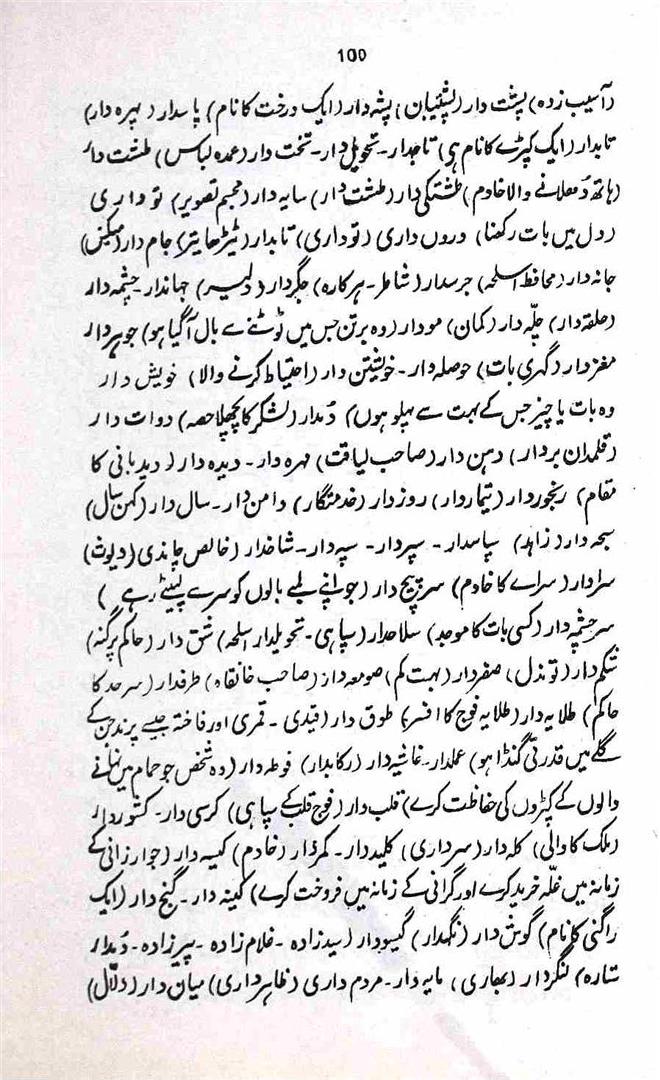 100
(آسیب زدہ) پشت دار (پشتیبان) پشہ دار (ایک درخت کا نام) پاسدار (پہرہ دار)
تابدار (ایک کپڑے کا نام ہی) تاجدار۔ تحویل دار۔ تخت دار (عمدہ لباس) طشت دار
(ہاتھ دھلانے والا خادم) طشتکی دار (طشت دار) سایہ دار (مجسم تصویر) تو داری
(دل میں بات رکھنا) دروں داری (تو داری) تابدار (ٹیڑھا یتر) جام دار (میکش)
جانہ دار (محافظ اسلحہ) جرسدار (شاطر۔ ہرکارہ) جگردار (دلیر) جہاندار۔ چشمہ دار
(حلقہ دار) چلّہ دار (کمان) مودار (وہ برتن جس میں ٹوٹنے سے بال آگیا ہو) جوہردار
مغزدار (گہری بات) حوصلہ دار۔ خویشتن دار (احتیاط کرنے والا) خویش دار
وہ بات یا چیز جس کے بہت سے پہلو ہوں) دُمدار (لشکر کا پچھلا حصہ) دوات دار
(قلمدان بردار) دہن دار (صاحب لیاقت) نہرہ دار۔ دیدہ دار (دیدبانی کا
مقام) رنجوردار (تیماردار) روزدار (خدمتگار) دامن دار۔ سال دار (کہن سال)
سبحہ دار (زاہد) سپاسدار۔ سپردار۔ سپہ دار۔ شاخدار (خالص چاندی (دیوث)
سرادار (سراے کا خادم) سر پیچ دار (جو اپنے لمبے بالوں کو سر سے لپیٹے رہے)
سرچشمہ دار (کسی بات کا موجد) سلاحدار (سپاہی۔ تحویلدار اسلحہ) شق دار (حاکم پرگنہ)
شکم دار (توندل) صفردار (بہت کم) صومعہ دار (صاحب خانقاہ) طرفدار (سرحد کا
حاکم) طلایہ دار (طلایہ فوج کا افسر) طوق دار (قیدی۔ قمری اور فاختہ جیسے پرند جن کے
گلے میں قدرتی گنڈا ہو) عملدار۔ غاشیہ دار (رکابدار) فوطہ دار (وہ شخص جو حمام میں نہانے
والوں کے کپڑوں کی حفاظت کرے) قلب دار (فوج قلب کے سپاہی) کرسی دار۔ کشوردار
(ملک کا والی) کلہ دار (سرداری) کلیددار۔ کمردار (خادم) کیسہ دار (جو ارزانی کے
زمانہ میں غلّہ خرید کرے اور گرانی کے زمانہ میں فروخت کرے) کینہ دار۔ گنج دار (ایک
راگنی کا نام) گوش دار (نگہدار) گیسودار (سیدزادہ۔ غلام زادہ۔ پیرزادہ۔ دُمدار
ستارہ) لنگردار (بھاری) مایہ دار۔ مردم داری (ظاہرداری) میان دار (دلّال)